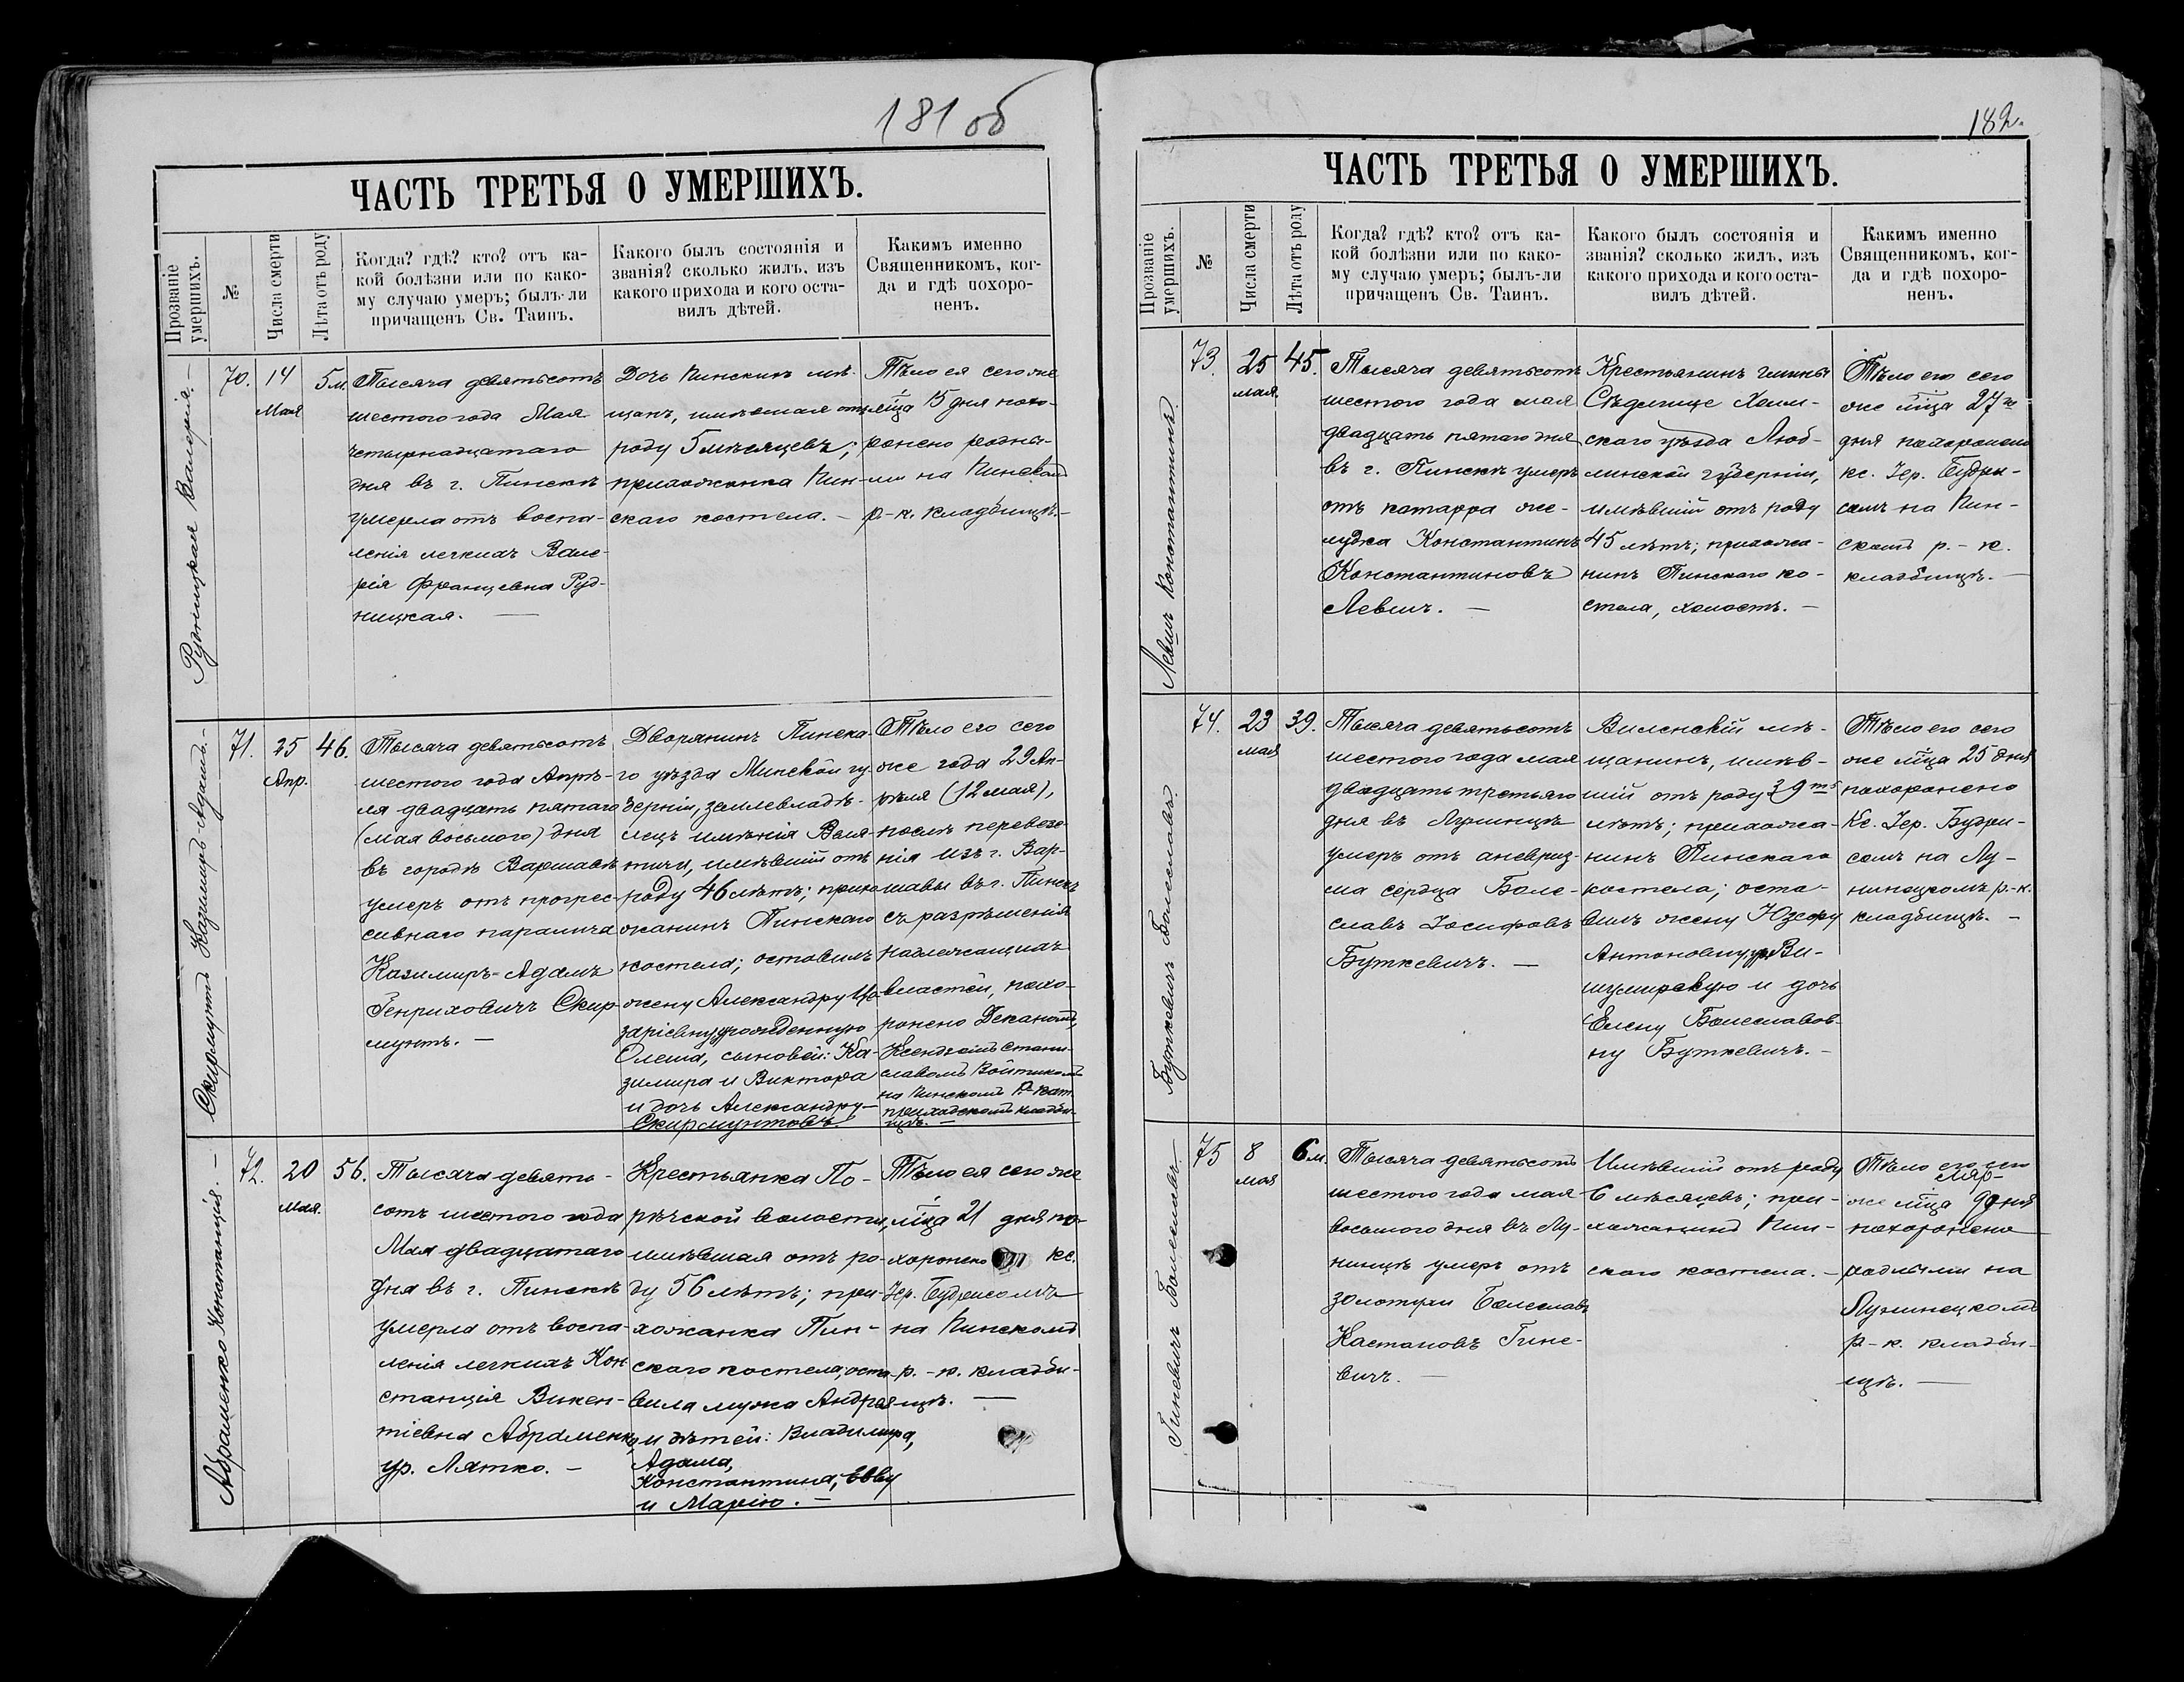 181 об
ЧАСТЬ ТРЕТЬЯ О УМЕРШИХЪ.
Прозваніе умершихъ.
№
Числа смерти
Лѣта отъ роду
Когда? гдѣ? кто? отъ ка-
кой болѣзни или по како-
му случаю умеръ; былъ-ли
причащенъ Св. Таинъ.
Какого былъ состоянія и
званія? сколько жилъ, изъ
какого прихода и кого оста-
вилъ дѣтей.
Какимъ именно
Священникомъ, ког-
да и гдѣ похоро-
ненъ.
Рудницкая Валерія. —
70.
14
Мая
5 м.
Тысяча девятьсотъ
шестого года Мая
четырнадцатаго
дня въ г. Пинскѣ
умерла отъ воспа-
ленія легкихъ Вале-
рія Францевна Руд-
ницкая. —
Дочь Пинскихъ мѣ-
щанъ, имѣвшая отъ
роду 5 мѣсяцевъ;
прихожанка Пин-
скаго костела. —
Тѣло ея сего же
м̃ца 15 дня похо-
ронено родны-
ми на Пинскомъ
р.-к. кладбищѣ. —
Скирмунтъ Казимиръ-Адамъ. —
71.
25
Апр.
46.
Тысяча девятьсотъ
шестого года Апрѣ-
ля двадцать пятаго
(мая восьмого) дня
въ городѣ Варшавѣ
умеръ отъ прогрес-
сивнаго паралича
Казимиръ-Адамъ
Генриховичъ Скир-
мунтъ. —
Дворянинъ Пинска-
го уѣзда Минской гу-
берніи, землевладѣ-
лецъ имѣнія Вуля-
тичи, имѣвшій отъ
роду 46 лѣтъ; прихо-
жанинъ Пинскаго
костела; оставилъ
жену Александру
зарiевну, урожденную
Олеша, сыновей: Ка-
зимира и Виктора
и дочь Александру —
Скирмунтовъ.
Тѣло его сего
же года 29 Ап-
рѣля (12 мая),
послѣ перевезе-
нія изъ г. Вар-
шавы въ г. Пинскъ
съ разрѣшенія
надлежащихъ
властей, похо-
ронено Деканомъ,
Ксендзомъ Стани-
славомъ Войтикомъ
на Пинскомъ Р-кат.
приходскомъ кладби-
щѣ. —
Абраменко Констанція. —
72.
20
Мая.
56.
Тысяча девять-
сотъ шестого года
Мая двадцатаго
дня въ г. Пинскѣ
умерла отъ воспа-
ленія легкихъ Кон-
станція Викен-
тіевна Абраменко,
ур. Лятко. —
Крестьянка По-
рѣчской волости,
имѣвшая отъ ро-
ду 56 лѣтъ; при-
хожанка Пин-
скаго костела; оста-
вила мужа Андрея
и дѣтей: Владимира,
Адама,
Константина, Еву
и Марію. —
Тѣло ея сего же
м̃ца 21 дня по-
хоронено кс.
Іер. Будрисомъ
на Пинскомъ
р.-к. кладби-
щѣ. —
182.
ЧАСТЬ ТРЕТЬЯ О УМЕРШИХЪ.
Прозваніе умершихъ.
№
Числа смерти
Лѣта отъ роду
Когда? гдѣ? кто? отъ ка-
кой болѣзни или по како-
му случаю умеръ; былъ-ли
причащенъ Св. Таинъ.
Какого былъ состоянія и
званія? сколько жилъ, изъ
какого прихода и кого оста-
вилъ дѣтей.
Какимъ именно
Священникомъ, ког-
да и гдѣ похоро-
ненъ.
Левшъ Константинъ.
73.
25
мая
45.
Тысяча девятьсотъ
шестого года мая
двадцать пятаго дня
въ г. Пинскѣ умеръ
отъ катарра же-
лудка Константинъ
Константиновъ
Левшъ. —
Крестьянинъ гмины
Сѣдлище Холм-
скаго уѣзда Люб-
линской губерніи,
имѣвшій отъ роду
45 лѣтъ; прихожа-
нинъ Пинскаго ко-
стела, холостъ. —
Тѣло его сего
же м̃ца 27го
дня похоронено
кс. Іер. Будри-
сомъ на Пин-
скомъ р.-к.
кладбищѣ. —
Буткевичъ Болеславъ.
74.
23
мая
39.
Тысяча девятьсотъ
шестого года мая
двадцать третьяго
дня въ Лунинцѣ
умеръ отъ аневриз-
ма сердца Боле-
славъ Іосифовъ
Буткевичъ. —
Виленскій мѣ-
щанинъ, имѣв-
шій отъ роду 39
лѣтъ; прихожа-
нинъ Пинскаго
костела; оста-
вилъ жену Юзефу
Антоновну ур. Ви-
шумирскую и дочь
Елену Болеславов-
ну Буткевичъ. —
Тѣло его сего
же м̃ца 25 дня
похоронено
Кс. Іер. Будри-
сомъ на Лу-
нинецкомъ р.-к.
кладбищѣ. —
Гиневичъ Болеславъ —
75
8
мая
6 м.
Тысяча девятьсотъ
шестого года мая
восьмого дня въ Лу-
нинцѣ умеръ отъ
золотухи Болеславъ
Кастановъ Гине-
вичъ. —
Имѣвшій отъ роду
6 мѣсяцевъ; при-
хожанинъ Пин-
скаго костела. —
Тѣло его сего
же м̃ца 9 дня
похоронено
родными на
Лунинецкомъ
р-к. кладби-
щѣ. —